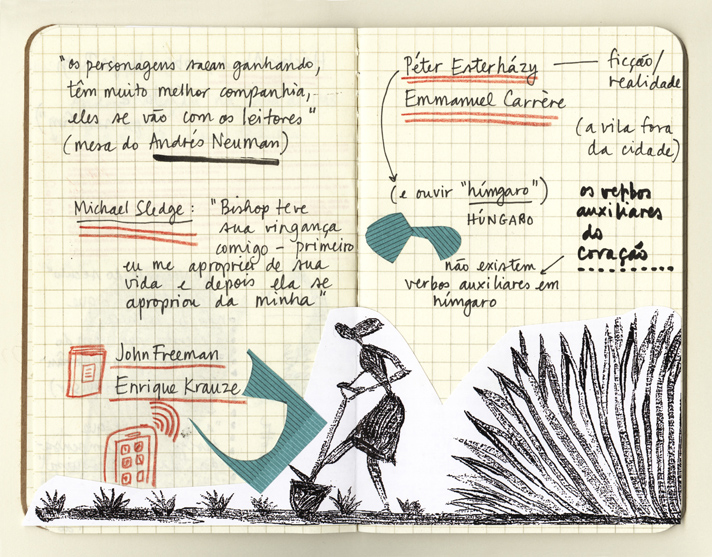 "os personagens saem ganhando,
têm muito melhor companhia,
eles se vão com os leitores"
(mesa do Andrés Neuman)
Michael Sledge: "Bishop teve
sua vingança
comigo – primeiro
eu me apropriei de sua
vida e depois ela se
apropriou da minha"
John Freeman
Enrique Krauze
Péter Esterházy — ficção/
realidade
Emmanuel Carrère
(a vila fora
da cidade)
(e ouvir "húngaro")
HÚNGARO
os verbos
auxiliares
do
coração
não existem
verbos auxiliares em
húngaro